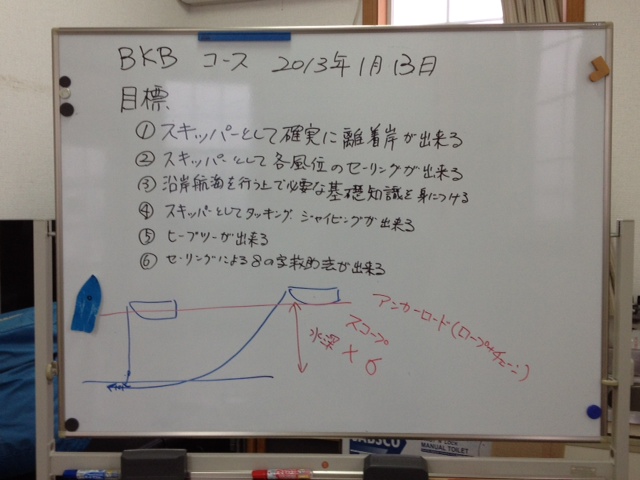 BKB コース 2013年1月13日
目標
① スキッパーとして確実に離着岸が出来る
② スキッパーとして各風位のセーリングが出来る
③ 沿岸航海を行う上で必要な基礎知識を身につける
④ スキッパーとしてタッキング ジャイビングが出来る
⑤ ヒーブツーが出来る
⑥ セーリングによる8の字救助法が出来る
アンカーロード(ロープ+チェーン)
スコープ
水深×6
MANUAL TOILET